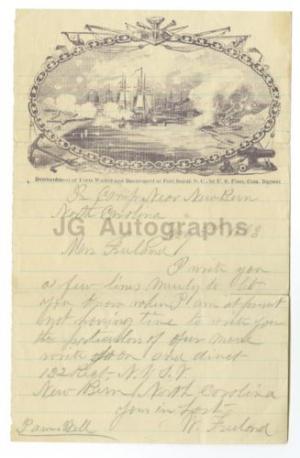 Bombardment of Forts Walker and Beauregard at Port Royal, S. C., by U. S. Fleet, Com. Dupont.
In Camp Near New Bern
North Carolina
JG Autographs
Mrs Freeland
I write you
a few lines merely to let
you know where I am at present
not having time to write you
the particulars of our
route
132 Regt. N.Y.S.V.
New Bern North Carolina
yours in haste
W. Freeland
I am Well